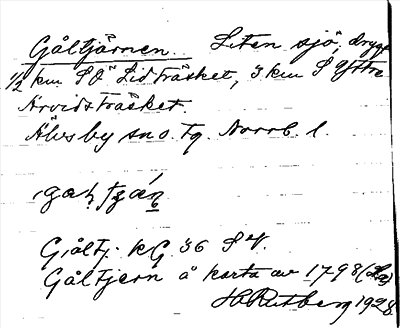 Gåltjärnen. Liten sjö, drygt
1/2 km SO Lidträsket, 3 km S Yttre
Arvidsträsket.
Älvsby sn o. tg. Norrb. l.
Gåltj. kG. 36 SV.
Gåltjern å karta av 1798 (La)
H Rutberg 1928